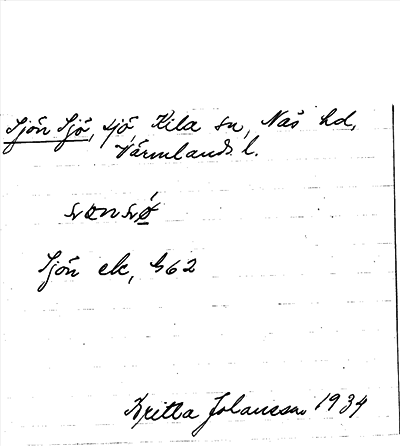 Sjön Sjö, sjö, Kila sn, Näs hd,
Värmlands l.
Sjön ek, 562
Britta Johansson 1934